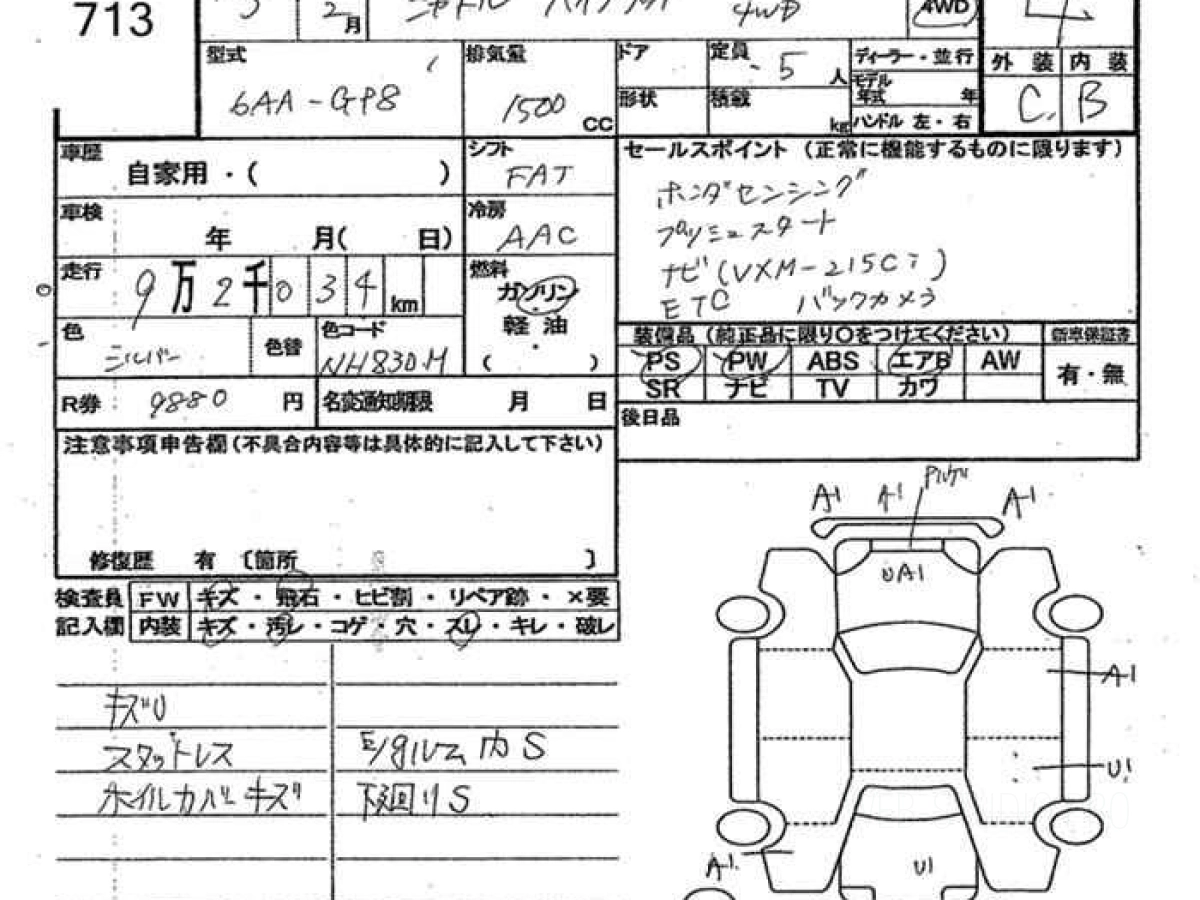 713
3 2月 シャトル ハイブリッド 4WD 4WD 4
型式 6AA-GP8
排気量 1500 CC
ドア
定員 5人
ディーラー・並行
モデル年式 年
形状
積載 kg
ハンドル 左・右
外装 内装
C. B
車歴 自家用・( )
シフト FAT
車検 年 月( 日)
冷房 AAC
走行 9万2千034km
燃料 ガソリン
軽油
( )
色 シルバー
色替
色コード NH830M
R券 9880円
名変通知期限 月 日
セールスポイント (正常に機能するものに限ります)
ホンダセンシング
プッシュスタート
ナビ(VXM-215Ci)
ETC バックカメラ
装備品(純正品に限り○をつけてください)
新車保証書
PS PW ABS エアB AW
有・無
SR ナビ TV カワ
後日品
注意事項申告欄(不具合内容等は具体的に記入して下さい)
修復歴 有 〔箇所 〕
検査員 FW キズ・飛石・ヒビ割・リペア跡・×要
記入欄 内装 キズ・汚レ・コゲ・穴・スレ・キレ・破レ
キズU
スタッドレス
ホイルカバーキズ
E/gルーム内S
下廻りS
A1 A1 A1
UA1
A1
U1
A1
U1